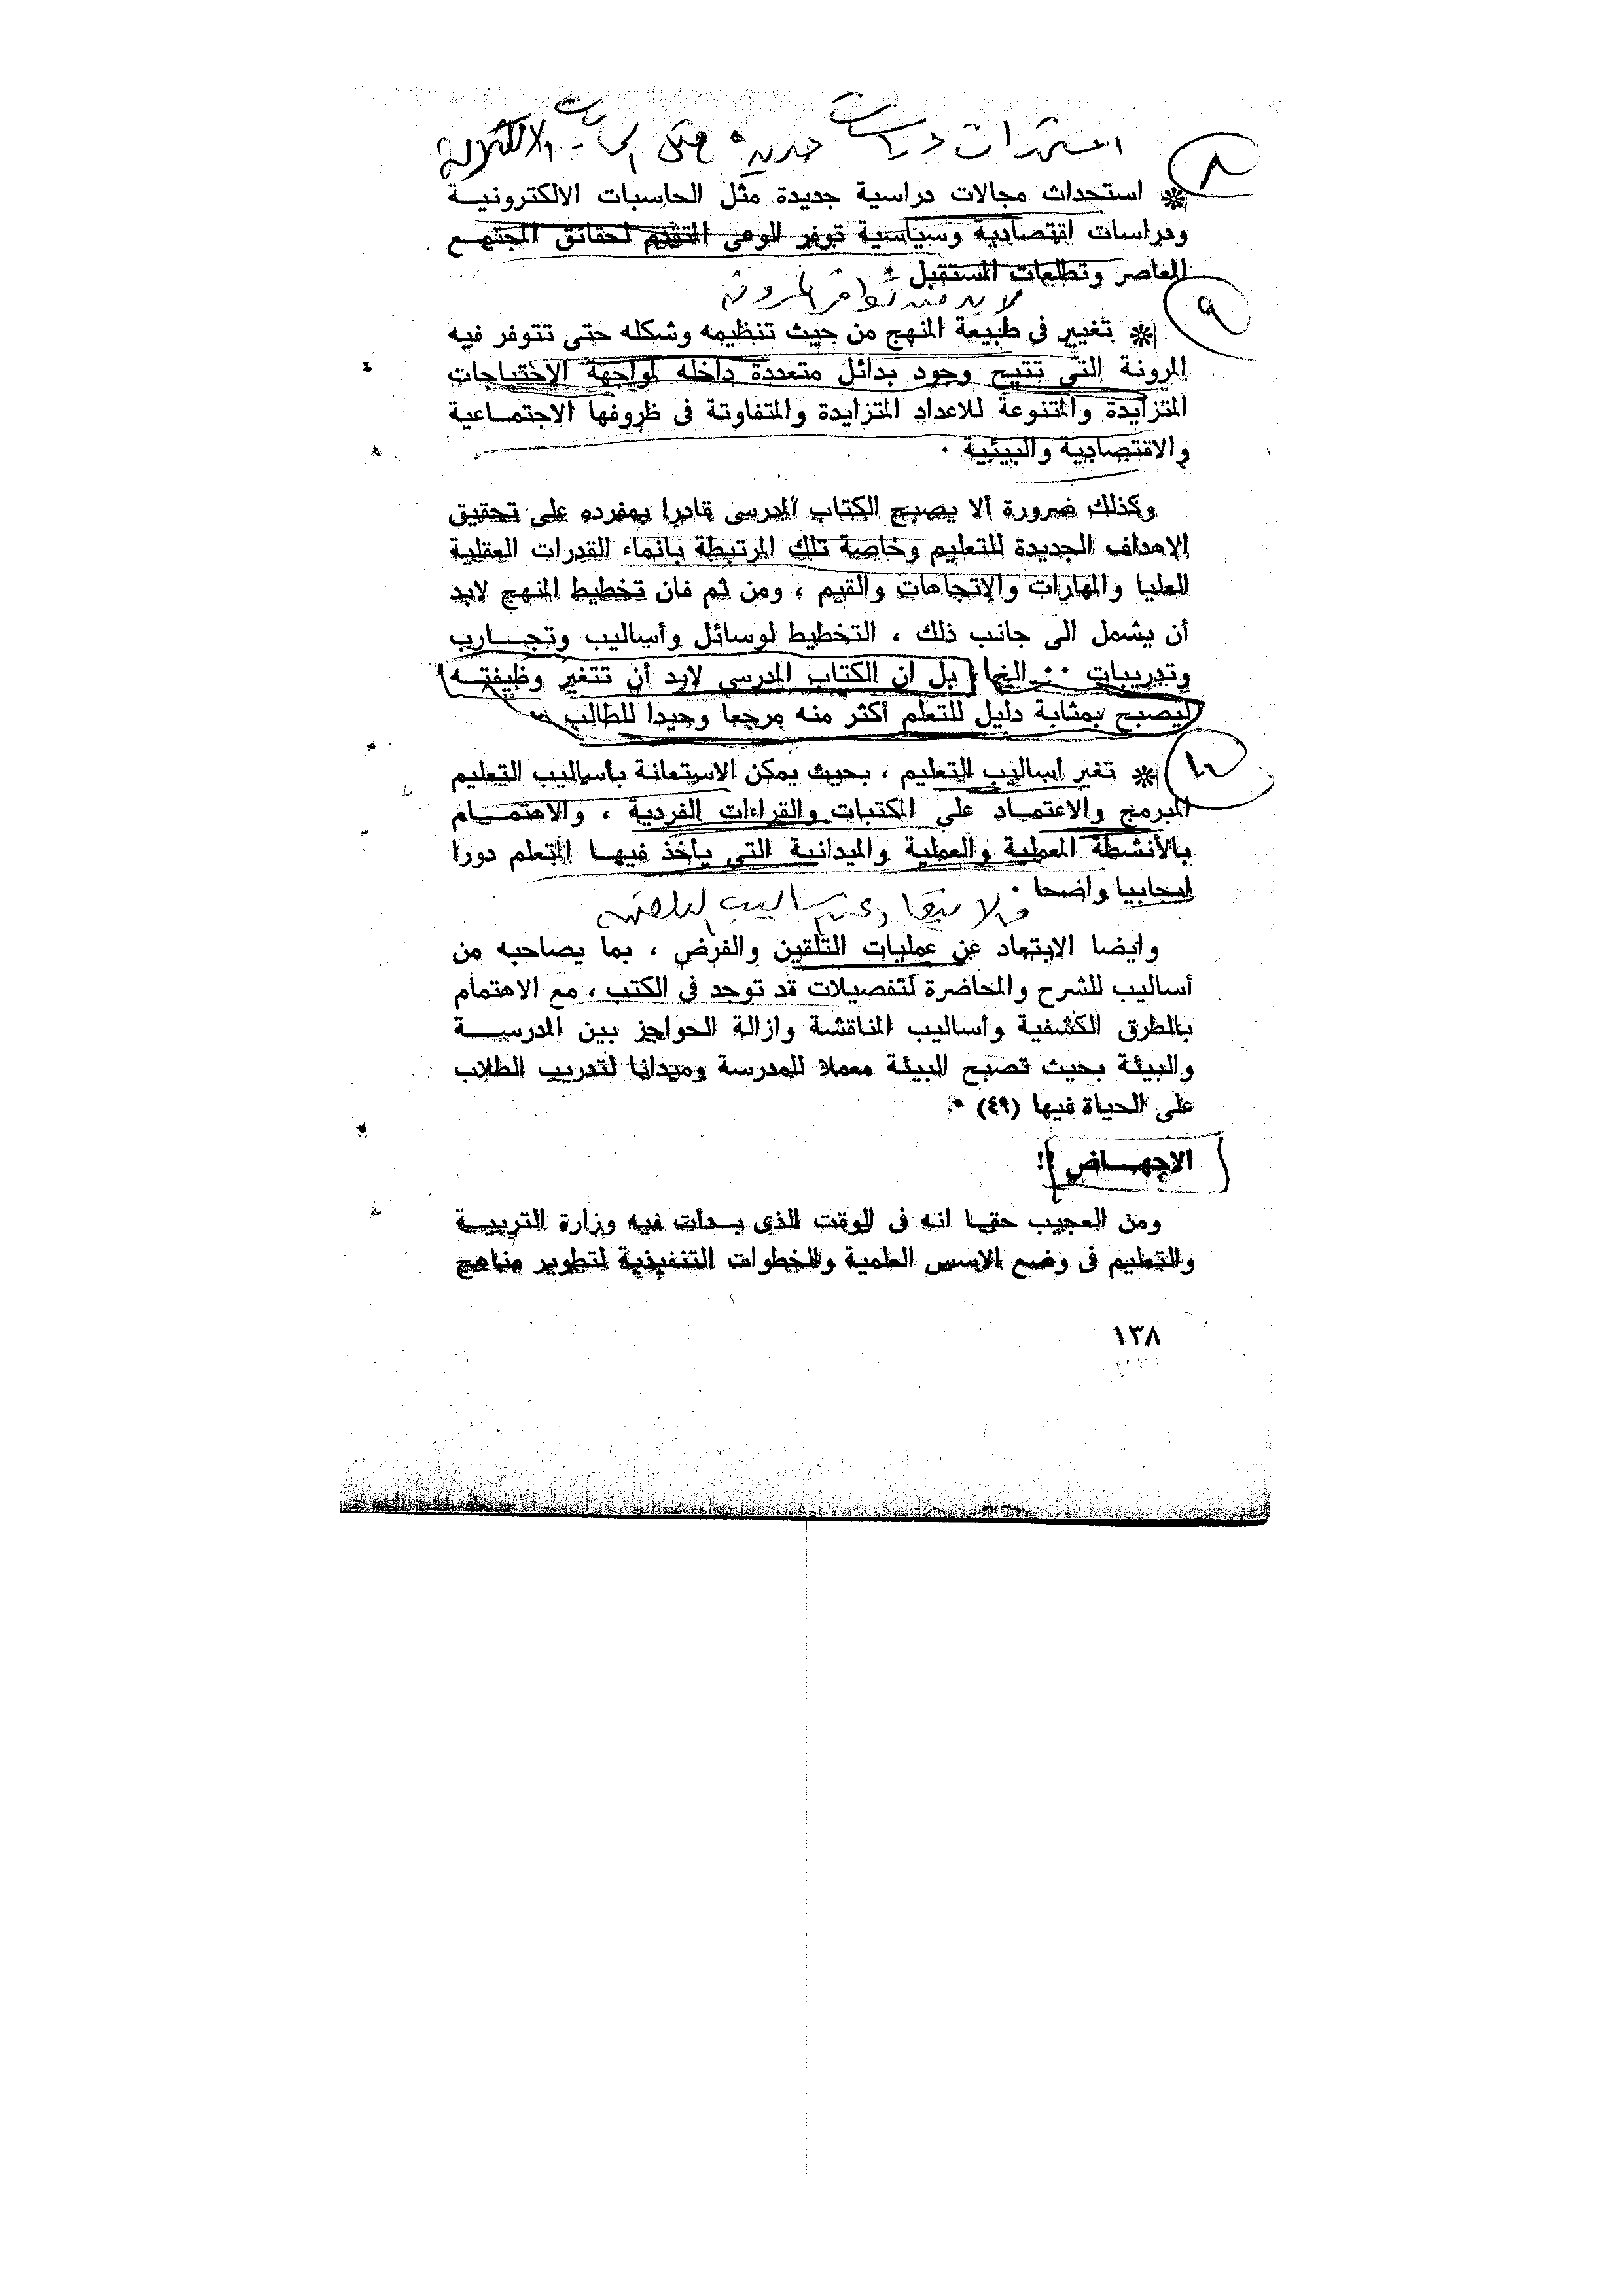 ٨
دراسات
* استحداث مجالات دراسية جديدة مثل الحاسبات الالكترونيـة
ودراسات اقتصادية وسياسية توفر الوعى المتقدم لحقائق المجتمـع
المعاصر وتطلعات المستقبل ٠
لابد من توافر المرونة
٩
* تغيير فى طبيعة المنهج من حيث تنظيمه وشكله حتى تتوفر فيه
المرونة التى تتيح وجود بدائل متعددة داخله لمواجهة الاحتياجات
المتزايدة والمتنوعة للاعداد المتزايدة والمتفاوتة فى ظروفها الاجتمـاعية
والاقتصادية والبيئية ٠
وكذلك ضرورة ألا يصبح الكتاب المدرسى قادرا بمفرده على تحقيق
الاهداف الجديدة للتعليم وخاصة تلك المرتبطة بانماء القدرات العقلية
العليا والمهارات والاتجاهات والقيم ، ومن ثم فان تخطيط المنهج لابد
أن يشمل الى جانب ذلك ، التخطيط لوسائل وأساليب وتجـــارب
وتدريبات ٠٠ الخ ، بل ان الكتاب المدرسى لابد أن تتغير وظيفتـه
ليصبح بمثابة دليل للتعلم أكثر منه مرجعا وحيدا للطالب ٠
١٠
* تغير أساليب التعليم ، بحيث يمكن الاستعانة بأساليب التعليم
المبرمج والاعتمـاد على المكتبات والقراءات الفردية ، والاهتمــام
بالأنشطة المعملية والعملية والميدانية التى يأخذ فيهـا المتعلم دورا
ايجابيا واضحا ٠
والابتعاد عن أساليب
وايضا الابتعاد عن عمليات التلقين والفرض ، بما يصاحبه من
أساليب للشرح والمحاضرة لتفصيلات قد توجد فى الكتب ، مع الاهتمام
بالطرق الكشفية وأساليب المناقشة وازالة الحواجز بين المدرســة
والبيئة بحيث تصبح البيئة معملا للمدرسة وميدانا لتدريب الطلاب
على الحياة فيها (٤٩) ٠
الاجهــاض !!
ومن العجيب حقـا انه فى الوقت الذى بـدأت فيه وزارة التربيـة
والتعليم فى وضع الاسس العلمية والخطوات التنفيذية لتطوير مناهج
١٣٨